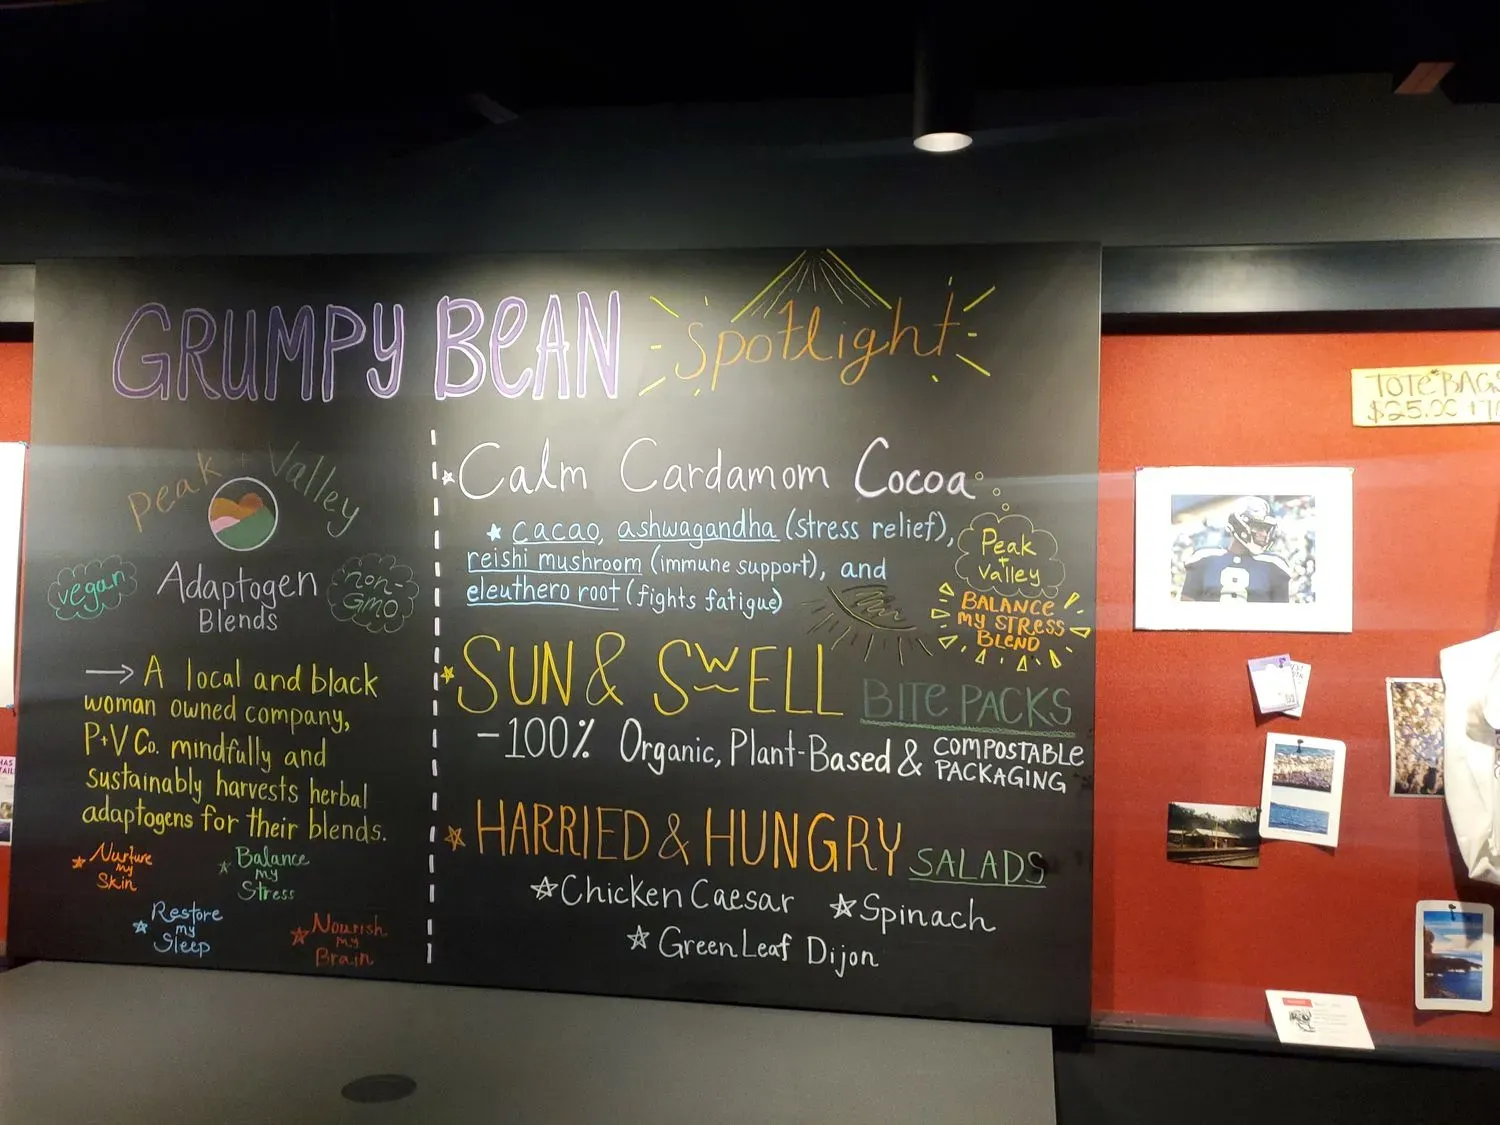 GRUMPY BEAN Spotlight
Peak + Valley
vegan
Adaptogen
Blends
non-
GMO
→ A local and black
woman owned company,
P+V Co. mindfully and
sustainably harvests herbal
adaptogens for their blends.
Nurture
my
Skin
Balance
my
Stress
Restore
my
Sleep
Nourish
my
Brain
Calm Cardamom Cocoa
cacao, ashwagandha (stress relief),
reishi mushroom (immune support), and
eleuthero root (fights fatigue)
Peak
+
Valley
BALANCE
MY STRESS
BLEND
SUN & SWELL BITE PACKS
-100% Organic, Plant-Based & COMPOSTABLE
PACKAGING
HARRIED & HUNGRY SALADS
Chicken Caesar
Spinach
Green Leaf Dijon
TOTE BAGS
$25.00